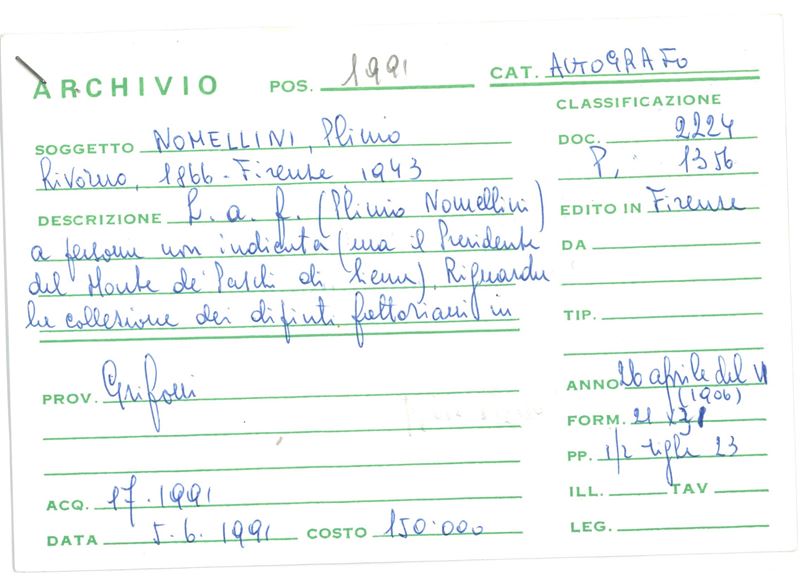 ARCHIVIO POS. 1991 CAT. AUTOGRAFO
CLASSIFICAZIONE
SOGGETTO NOMELLINI, Plinio
DOC. 2224
Livorno, 1866 - Firenze 1943
P. 1356
DESCRIZIONE L. a. f. (Plinio Nomellini)
EDITO IN Firenze
a persona non indicata (ma il Presidente
DA
del Monte de' Paschi di Siena). Riguarda
la collezione dei dipinti fattoriani in
TIP.
PROV. Grifoni
ANNO 26 aprile del VI
(1906)
FORM. 21
PP. 1/2 23
ACQ. 17.1991
ILL. TAV
DATA 5.6.1991 COSTO 150.000
LEG.